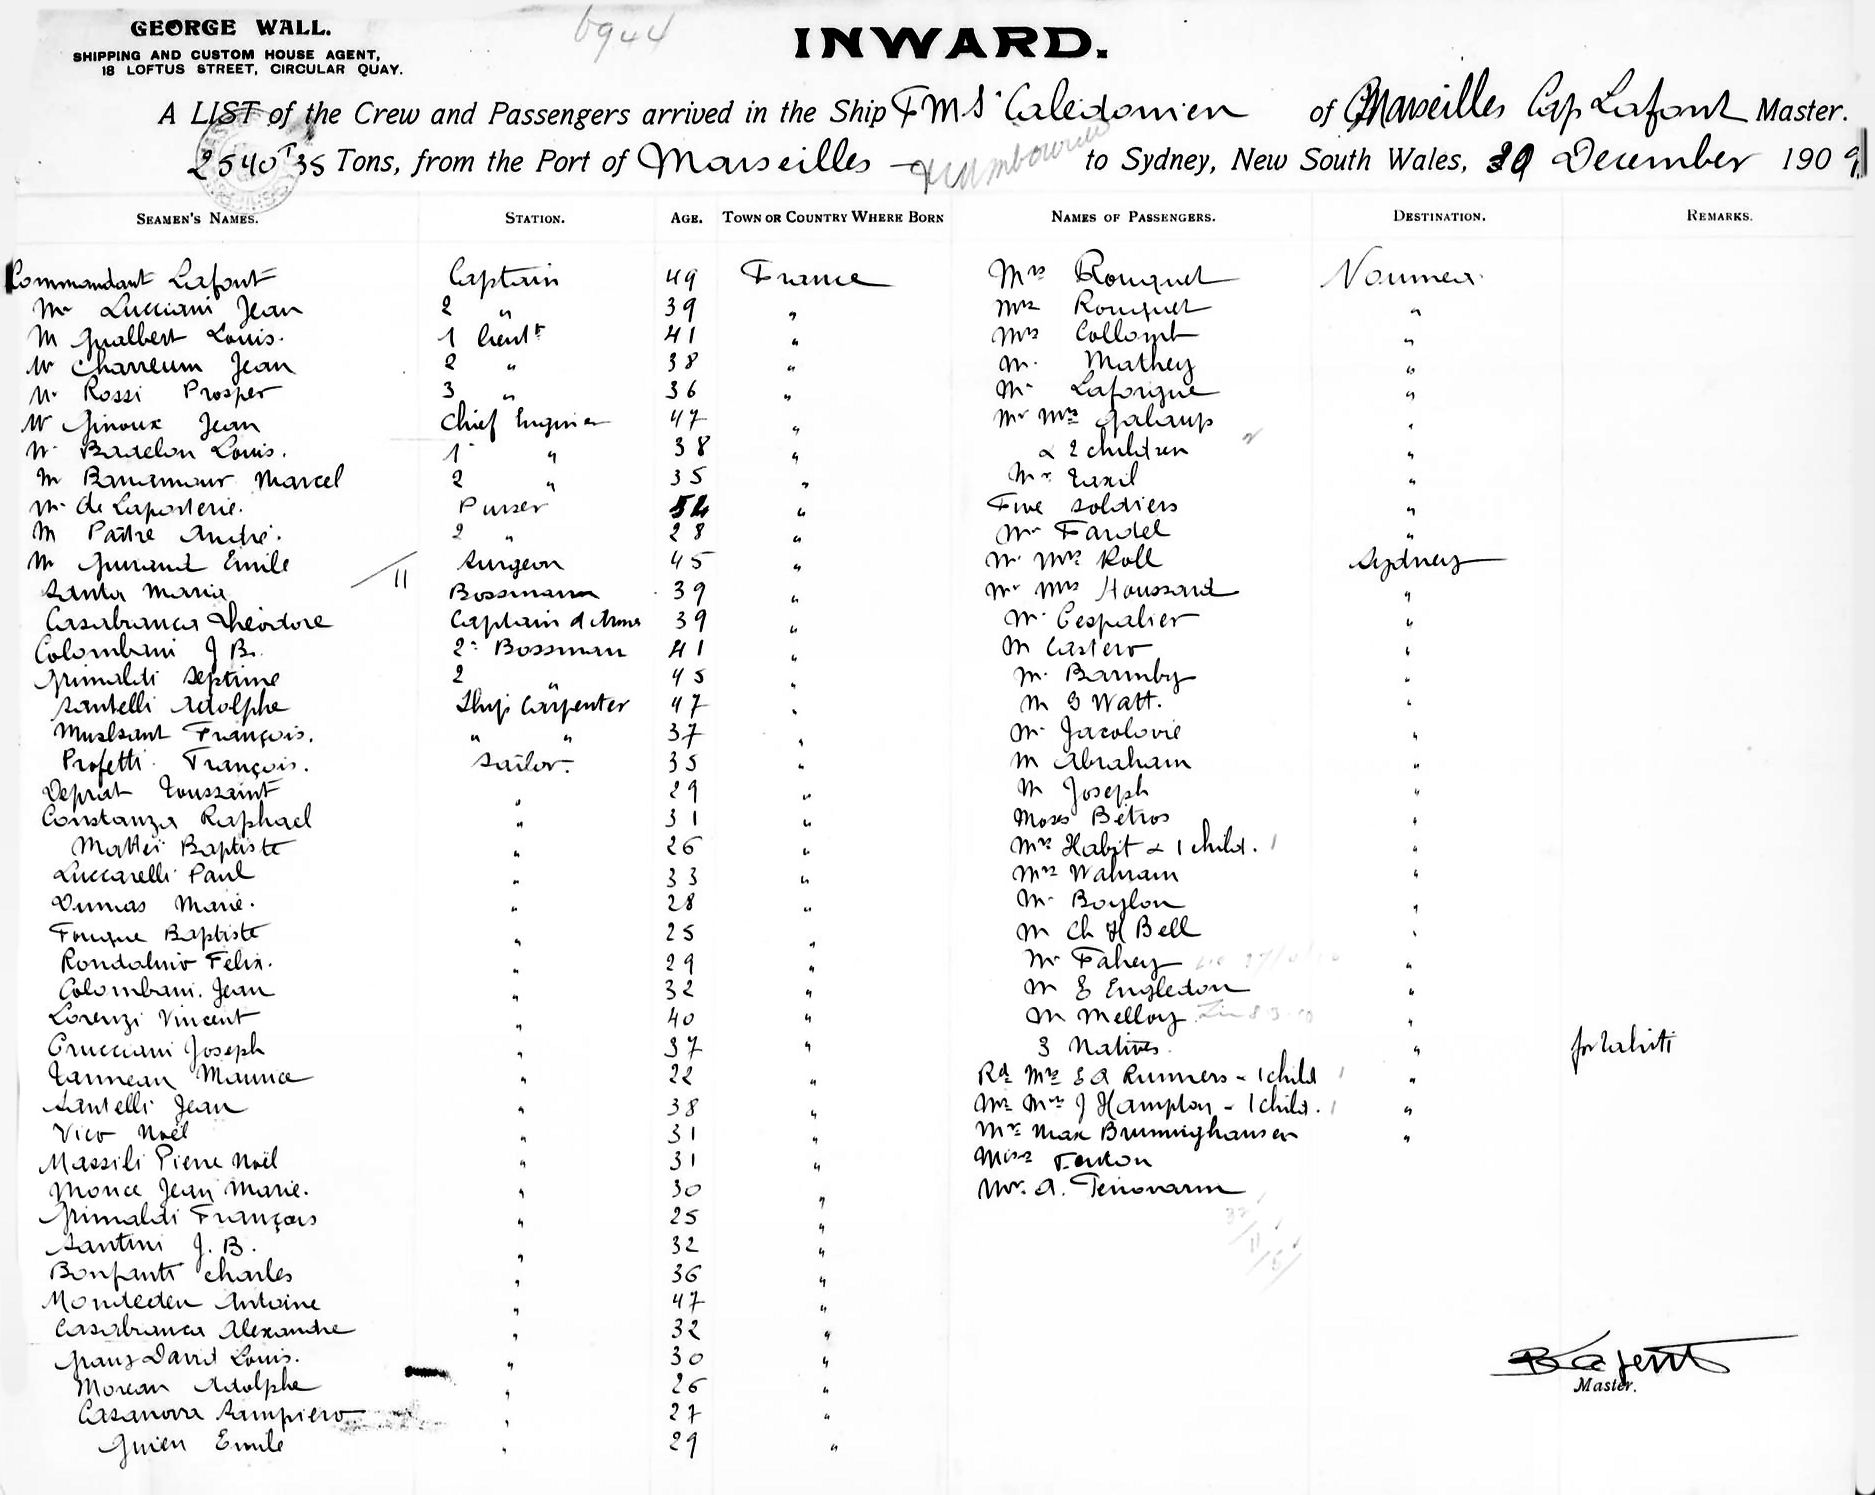 GEORGE WALL.
SHIPPING AND CUSTOM HOUSE AGENT,
18 LOFTUS STREET, CIRCULAR QUAY.
6944
INWARD.
A LIST of the Crew and Passengers arrived in the Ship FMS Caledonien of Marseilles Cap Lafont Master.
2540 T 35 Tons, from the Port of Marseilles to Sydney, New South Wales, December 1909
SEAMEN'S NAMES. STATION. AGE. TOWN OR COUNTRY WHERE BORN NAMES OF PASSENGERS. DESTINATION. REMARKS.
Commandant Lafont Captain 49 France Mrs Rouquet Noumea
Mr Lucciani Jean 2 " 39 " Mrs Rouquet "
M Gualbert Louis. 1 Lieutt 41 " Mrs Collomb "
Mr Charreum Jean 2 " 38 " M. Mathey "
Mr Rossi Prosper 3 " 36 " Mr Laforgue "
Mr Ginoux Jean Chief Enginier 47 " Mr Mrs Galaup "
Mr Badelon Louis. 1 " 38 " & 2 children "
M Marcel 2 " 35 " Mr Taxil "
Mr de Laporterie. Purser " Five soldiers "
M Paître André. 2 " 28 " Mr Fardel "
M Emile 11 Surgeon 45 " Mr Mrs Roll Sydney
Santa Maria Bossmann 39 " Mr Mrs Houssard "
Casabianca Théodore Captain d'Armes 39 " Mr Cespalier "
Colombani J B. 2e Bossman 41 " M Castero "
Grimaldi Septime 2 " 45 " M. Barmby "
Santelli Adolphe Ship Carpenter 47 " M G Watt. "
François. " " 37 " Mr Jacolovie "
Profetti François. Sailor. 35 " M Abraham "
Deprat Toussaint " 29 " M Joseph "
Constanza Raphael " 31 " Moses Betros "
Mattei Baptiste " 26 " Mrs Habit & 1 child. "
Luccarelli Paul " 33 " Mrs Wahram "
Dumas Marie. " 28 " Mr Boylon "
Fouque Baptiste " 25 " M Ch H Bell "
Rondolino Félix. " 29 " Mr Fahey "
Colombani. Jean " 32 " M E Engledon "
Lorenzi Vincent " 40 " M Melloy "
Crucciani Joseph " 37 " 3 Natives " for Tahiti
Tanneau Maurice " 22 " Rd Mrs E A Runners - 1 child "
Santelli Jean " 38 " Mr Mrs J Hampton - 1 child. "
Vico Noël " 31 " Mr Max Brunninghausen "
Massili Pierre Noël " 31 " Miss Fenton
Monce Jean Marie. " 30 " Mr. A.
Grimaldi François " 25 "
Santini J. B. " 32 "
Bonfanti Charles " 36 "
Antoine " 47 "
Casabianca Alexandre " 32 "
David Louis. " 30 "
Moreau Adolphe " 26 "
Casanova Sampiero " 27 "
Guien Emile " 29 "
B Lafont
Master.